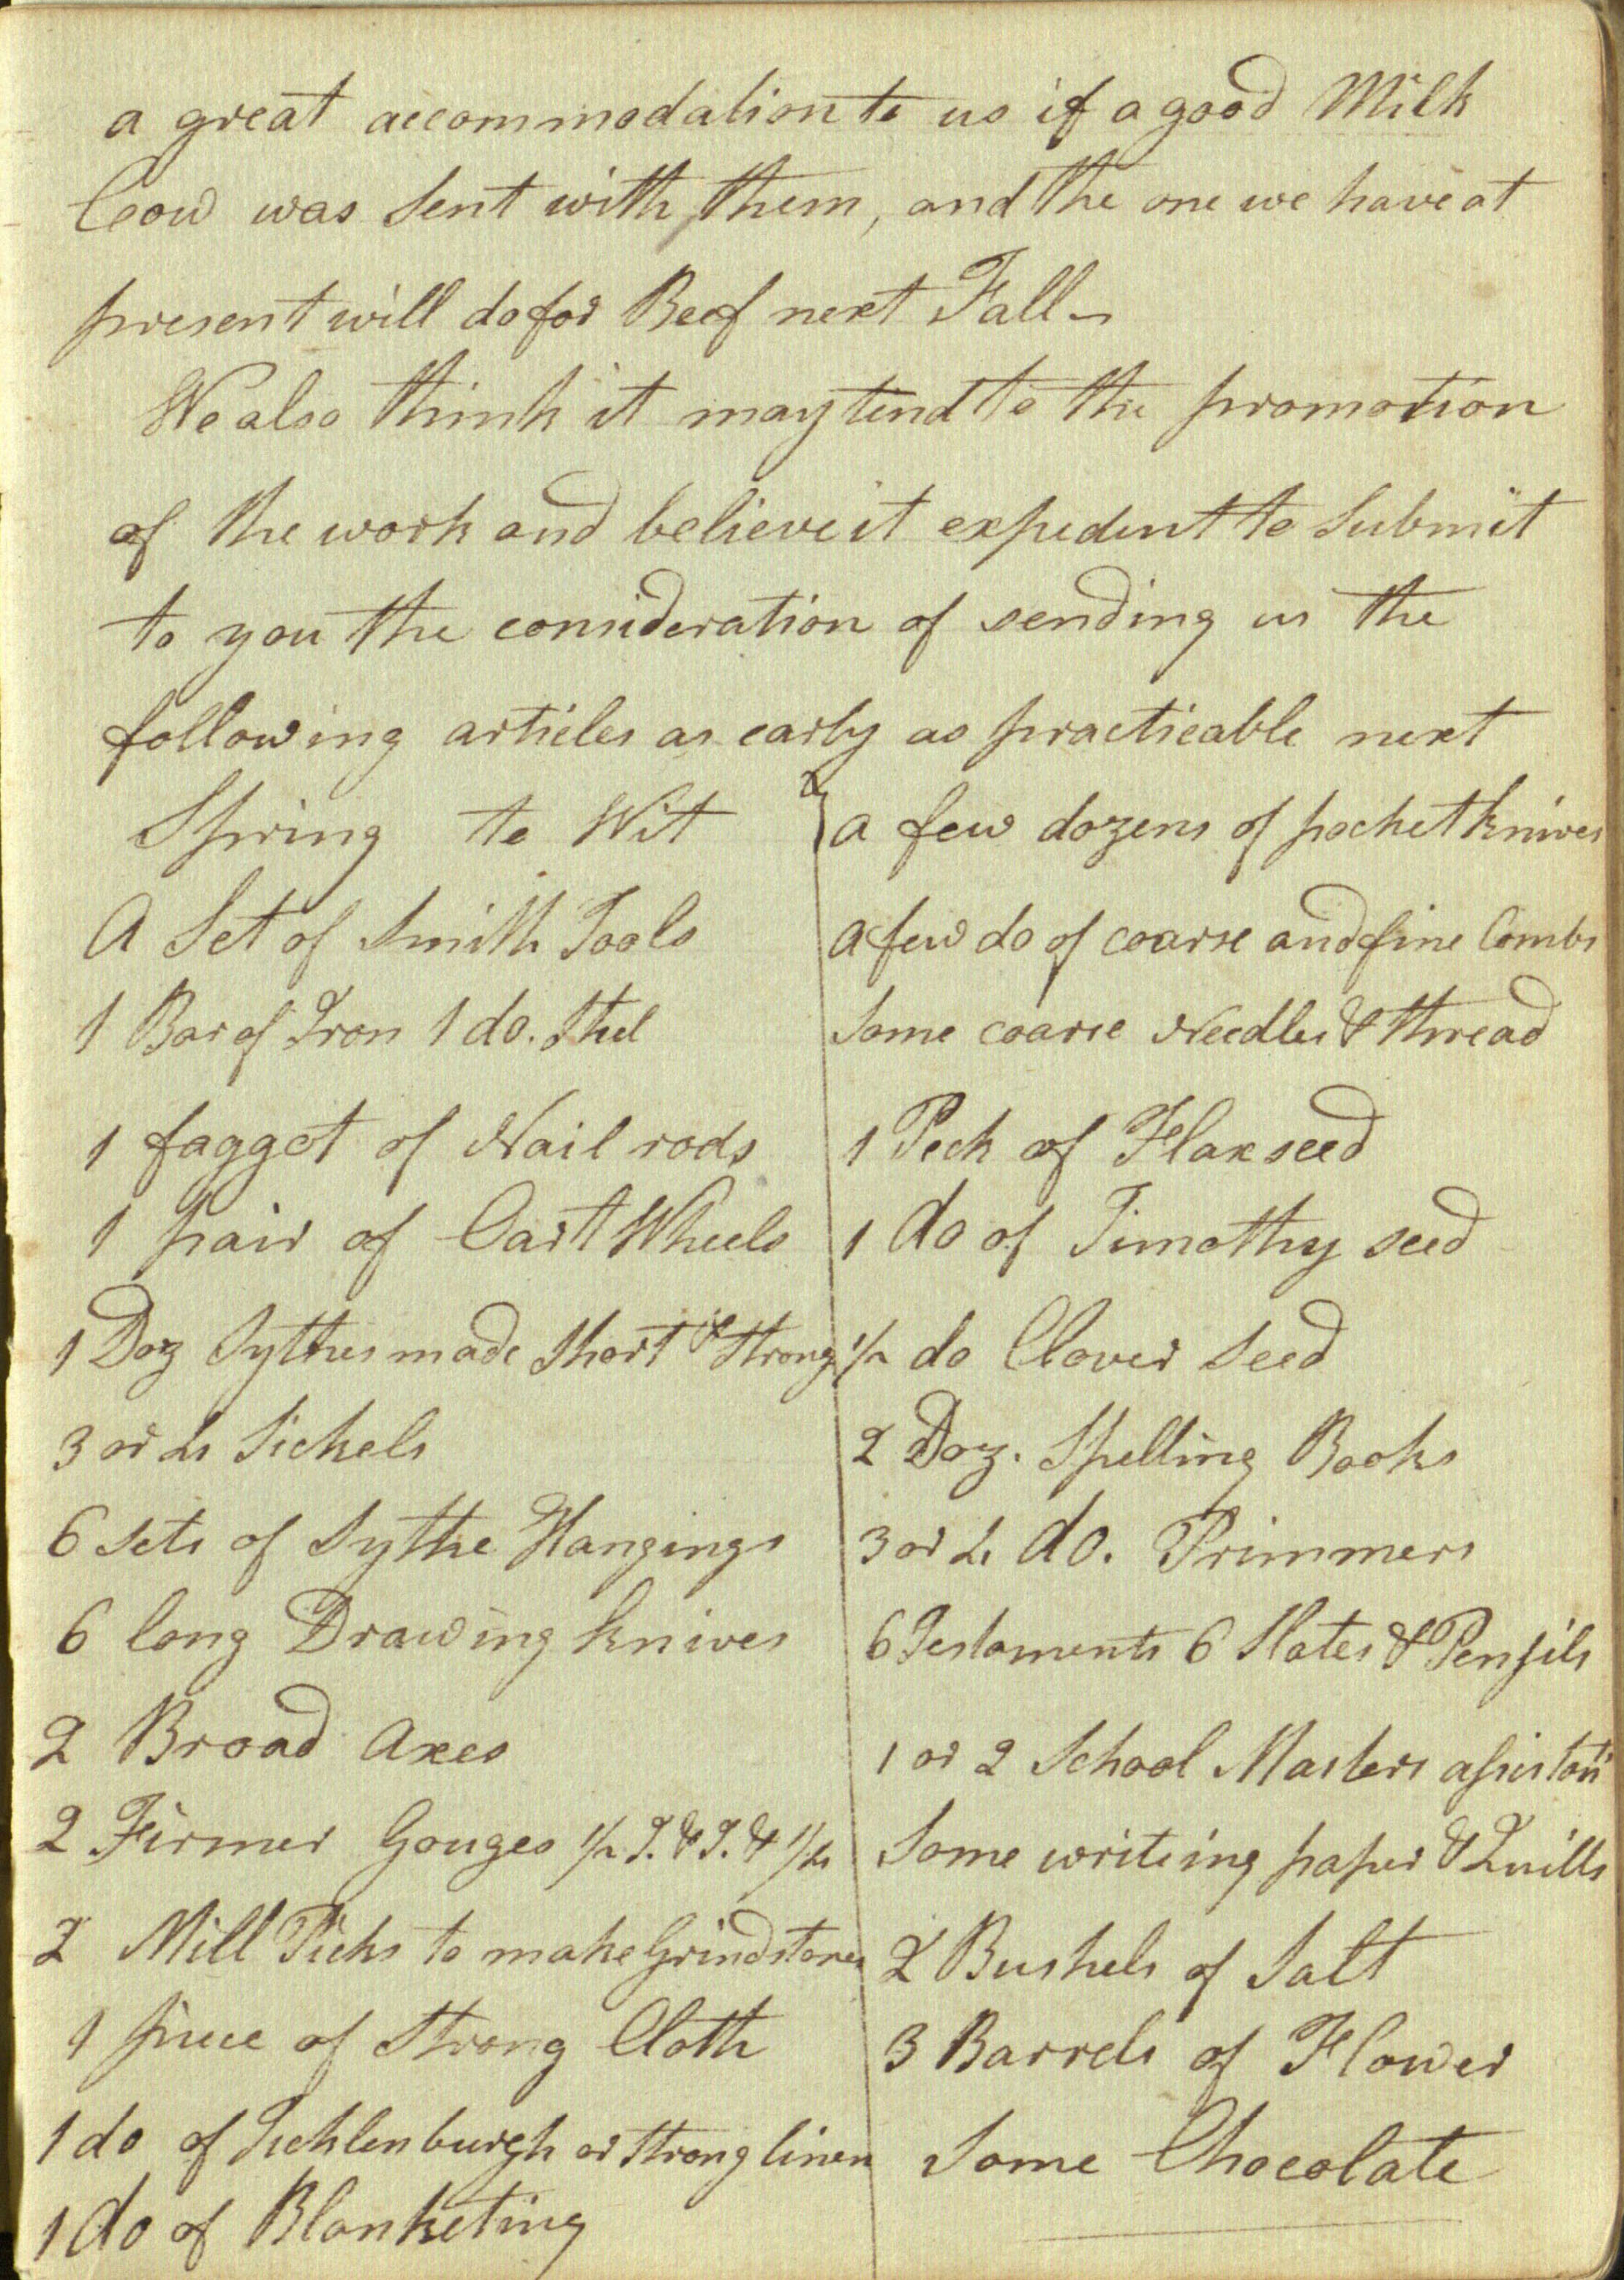 a great accommodation to us if a good Milk
Cow was Sent with them, and the one we have at
present will do for Beef next Fall
We also think it may tend to the promotion
of the work and believe it expedent to Submit
to you the consideration of sending us the
following articles as early as practicable next
Spring to Wit
A Set of Smith Tools
1 Bar of Iron 1 do. Steel
1 faggot of Nail rods
1 pair of Cart Wheels
1 Doz Sythes made Short & Strong
3 or 4 Sickels
6 Sets of Sythe Hangings
6 long Drawing knives
2 Broad Axes
2 Firmer Gouges 1/2 I. & I. & 1/4
2 Mill Picks to make Grindstones
1 piece of Strong Cloth
1 do of Ticklenburgh or Strong linen
1 do of Blanketing
a few dozens of pocket knives
a few do of coarse and fine Combs
Some coarse Needles & thread
1 Peck of Flaxseed
1 do of Timothy seed
1/2 do Clover Seed
2 Doz. Spelling Books
3 or 4 do. Primmers
6 Testaments 6 Slates & Pensils
1 or 2 School Masters assistant
Some writeing paper & Quills
2 Bushels of Salt
3 Barrels of Flower
Some Chocolate